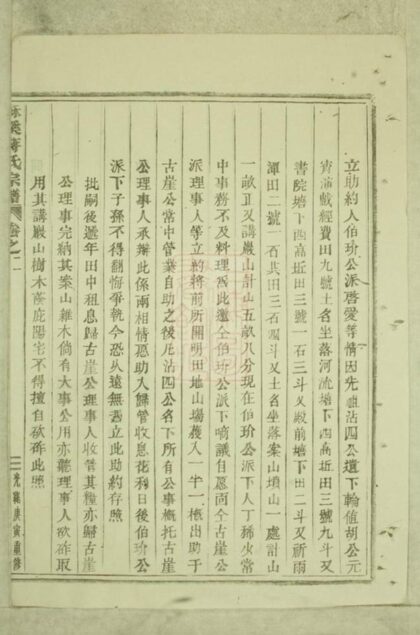 立助約人伯玠公派啓愛等情因先祖沾四公遺下輪值胡公元
宵演戲經費田九號土名坐落河流塘下四高坵田三號九斗又
書院塘下四高坵田三號一石三斗又殿前塘下田二斗又祈雨
潭田二號一石共田三石四斗又土名坐落案山墳山一處計山
一畝正又講巖山計山五畝八分現在伯玠公派下人丁稀少常
中事務不及料理為此邀仝伯玠公派下嘀議自愿向仝古崖公
派理事人等立約將前所開明田地山塲蓡入一半一概出助于
古崖公常中管業自助之後凡沾四公名下所有公事概托古崖
公理事人承辦此係兩相情愿助入歸管收息花利日後伯玠公
派下子孫不得翻悔爭執今恐久遠無憑立此助約存照
批嗣後遞年田中租息歸古崖公理事人收管其糧亦歸古崖
公理事完納其案山雜木倘有大事公用亦聽理事人砍斫取
用其講巖山樹木蔭庇陽宅不得擅自砍斫此照
氏宗譜 卷之二
光緒庚寅重修